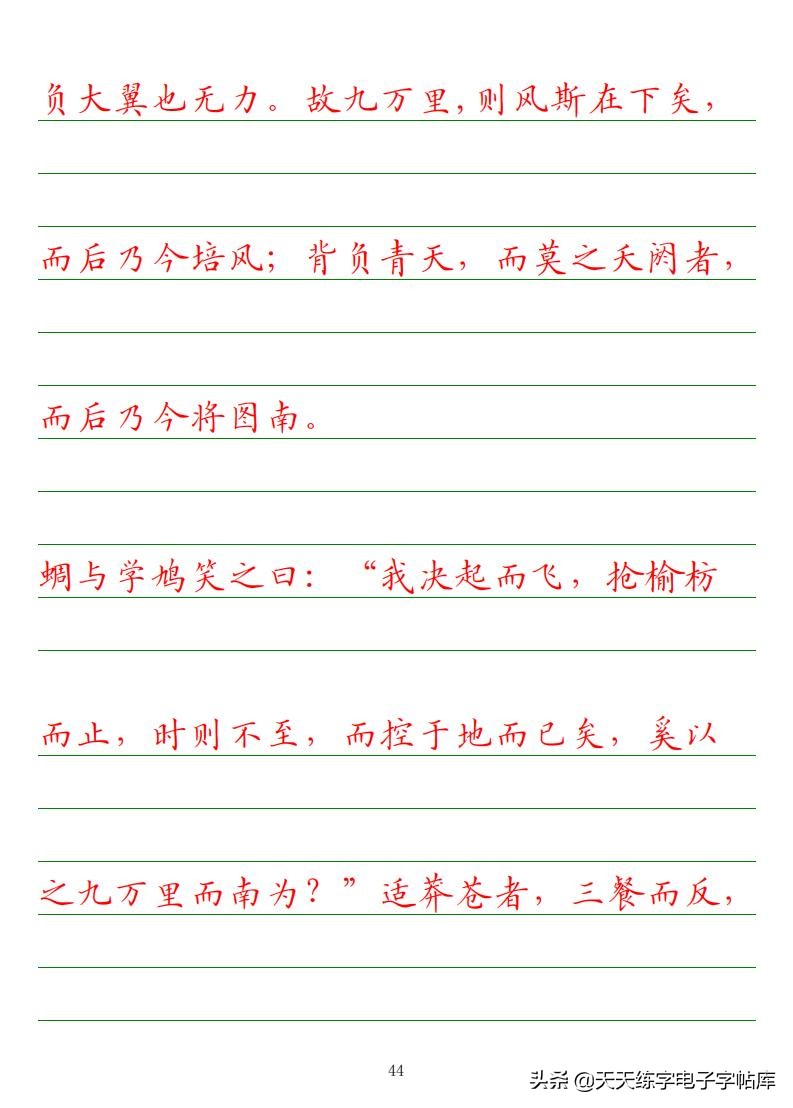 负大翼也无力。故九万里,则风斯在下矣，
而后乃今培风；背负青天，而莫之夭阏者，
而后乃今将图南。
蜩与学鸠笑之曰：“我决起而飞，抢榆枋
而止，时则不至，而控于地而已矣，奚以
之九万里而南为？”适莽苍者，三餐而反，
44
头条 @天天练字电子字帖库